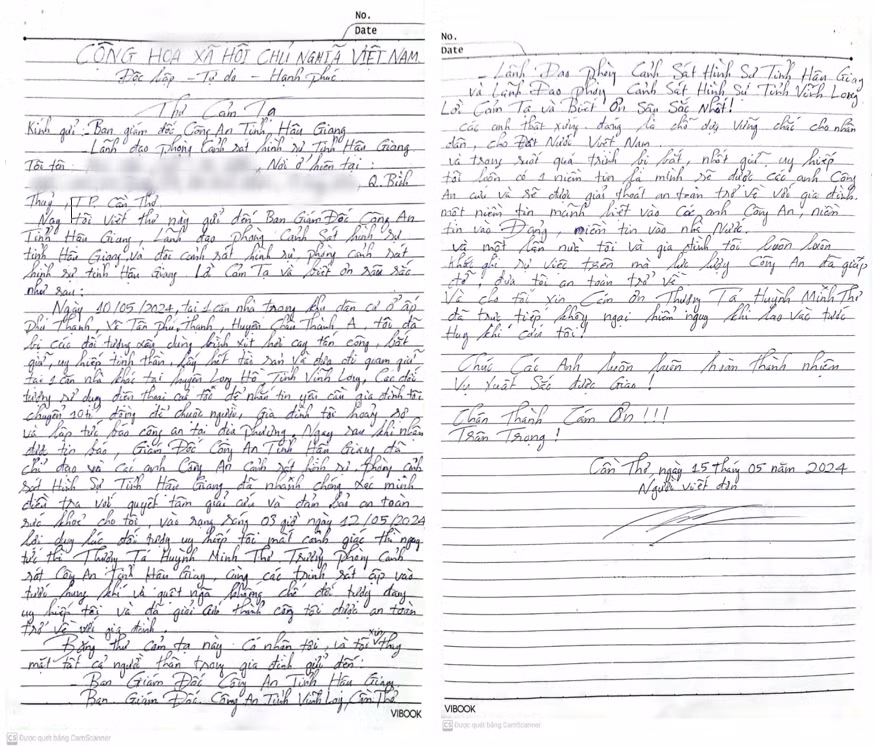 No.
Date
CỘNG HOA XÃ HỘI CHỦ NGHĨA VIỆT NAM
Độc lập - Tự do - Hạnh phúc
Thư Cảm Tạ
Kính gửi: Ban giám đốc Công An Tỉnh Hậu Giang
- Lãnh đạo phòng Cảnh sát hình sự Tỉnh Hậu Giang
Tôi tên , Nơi ở hiện tại :
, Q. Bình
Thuỷ, TP. Cần Thơ.
Nay tôi viết thư này gửi đến Ban Giám Đốc Công An
Tỉnh Hậu Giang, Lãnh đạo phòng Cảnh Sát hình sự
tỉnh Hậu Giang và đội cảnh sát hình sự, phòng cảnh sát
hình sự tỉnh Hậu Giang. Lời Cảm Tạ và biết ơn sâu sắc
như sau:
Ngày 10/05/2024, tại 1 căn nhà trong khu dân cư ở ấp
Phú Thạnh, xã Tân Phú Thạnh, Huyện Châu Thành A, tôi đã
bị các đối tượng xấu dùng bình xịt hơi cay tấn công, bắt
giữ, uy hiếp tinh thần, lấy hết tài sản và đưa đi quản giữ
tại 1 căn nhà khác tại huyện Long Hồ, Tỉnh Vĩnh Long, Các đối
tượng sử dụng điện thoại của tôi để nhắn tin yêu cầu gia đình tôi
chuyển 10 tỷ đồng để chuộc người, Gia đình tôi hoảng sợ
và lập tức báo công an tại địa phương, Ngay sau khi nhận
được tin báo, Giám Đốc Công An Tỉnh Hậu Giang đã
chỉ đạo và các anh Công An cảnh sát hình sự, phòng cảnh
sát Hình Sự Tỉnh Hậu Giang đã nhanh chóng xác minh
điều tra với quyết tâm giải cứu và đảm bảo an toàn
sức khoẻ cho tôi, vào rạng sáng 03 giờ ngày 12/05/2024
lợi dụng lúc đối tượng uy hiếp tôi mất cảnh giác thì ngay
tức thì Thượng Tá Huỳnh Minh Thơ, Trưởng phòng Cảnh
sát Công An Tỉnh Hậu Giang, cùng các trinh sát ập vào
tước hung khí và quật ngã khống chế đối tượng đang
uy hiếp tôi và đã giải cứu thành công tôi được an toàn
trở về với gia đình.
Bằng thư cảm tạ này Cá nhân tôi, và tôi xin thay
mặt tất cả người thân trong gia đình gửi đến:
- Ban Giám Đốc Công An Tỉnh Hậu Giang,
Ban Giám Đốc Công An Tỉnh Vĩnh Long, Cần Thơ
VIBOOK
CS Được quét bằng CamScanner
No.
Date
- Lãnh Đạo phòng Cảnh Sát Hình Sự Tỉnh Hậu Giang
và Lãnh Đạo phòng Cảnh Sát Hình Sự Tỉnh Vĩnh Long
Lời Cảm Tạ và Biết Ơn Sâu Sắc Nhất!
Các anh thật xứng đáng là chỗ dựa vững chắc cho nhân
dân, cho Đất Nước Việt Nam.
và trong suốt quá trình bị bắt, nhốt giữ, uy hiếp
tôi luôn có 1 niềm tin là mình sẽ được các anh Công
An cứu và sẽ được giải thoát an toàn trở về với gia đình.
một niềm tin mãnh liệt vào Các anh Công An, niềm
tin vào Đảng, niềm tin vào nhà Nước.
và một lần nữa tôi và gia đình tôi luôn luôn
khắc ghi sự việc trên mà lực lượng Công An đã giúp
đỡ, đưa tôi an toàn trở về
Và cho tôi xin Cám ơn Thượng Tá Huỳnh Minh Thơ
đã trực tiếp không ngại hiểm nguy khi lao vào tước
Hung khí cứu tôi!
Chúc Các Anh luôn luôn hoàn thành nhiệm
Vụ Xuất Sắc được Giao!
Chân Thành Cám Ơn!!!
Trân Trọng!
Cần Thơ, ngày 15 tháng 05 năm 2024
Người viết đơn
VIBOOK
CS Được quét bằng CamScanner